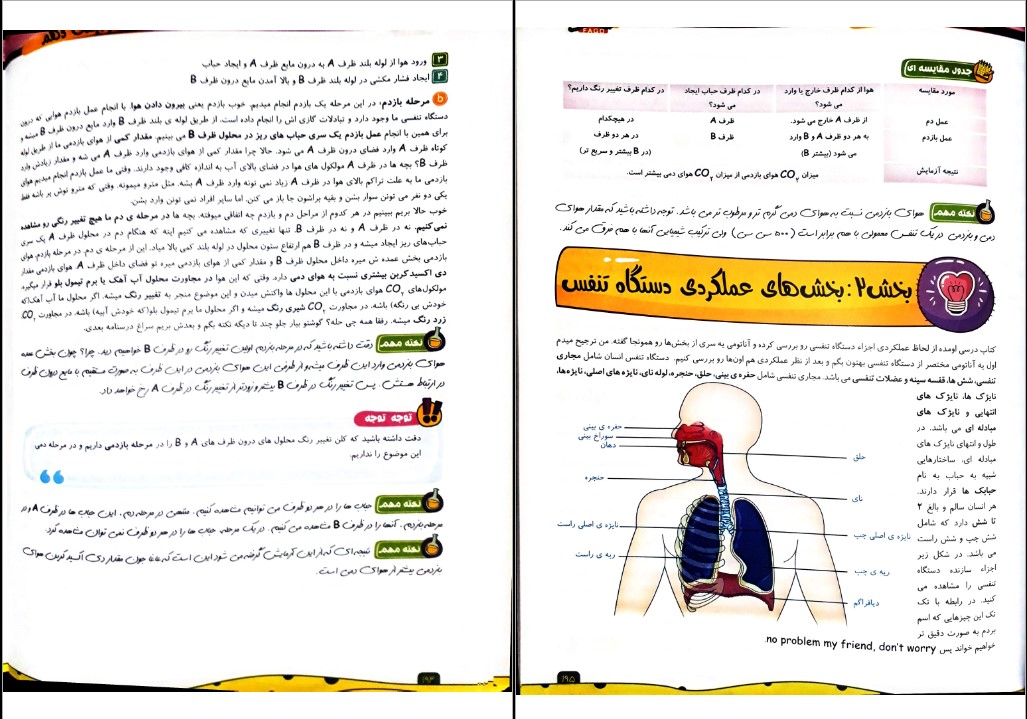 ۳ ورود هوا از لوله بلند ظرف A به درون مایع ظرف A و ایجاد حباب
۴ ایجاد فشار مکشی در لوله بلند ظرف B و بالا آمدن مایع درون ظرف B
b مرحله بازدم: در این مرحله یک بازدم انجام میدیم. خوب بازدم یعنی بیرون دادن هوا. با انجام عمل بازدم هوایی که درون
دستگاه تنفسی ما وجود دارد و تبادلات گازی اش را انجام داده است، از طریق لوله ی بلند ظرف B وارد مایع درون ظرف B میشه و
برای همین با انجام عمل بازدم یک سری حباب های ریز در محلول ظرف B می بینیم. مقدار کمی از هوای بازدمی ما از طریق لوله
کوتاه ظرف A وارد فضای درون ظرف A می شود. حالا چرا مقدار کمی از هوای بازدمی وارد ظرف A می شه و مقدار زیادش وارد
ظرف B؟ بچه ها در ظرف A مولکول های هوا در فضای بالای آب به اندازه کافی وجود دارند. وقتی ما عمل بازدم انجام میدیم هوای
بازدمی ما به علت تراکم بالای هوا در ظرف A زیاد نمی تونه وارد ظرف A بشه. مثل مترو میمونه. وقتی که مترو توش پر باشه فقط
یکی دو نفر می تونن سوار بشن و بقیه براشون جا باز می کنن. اما سایر افراد نمی تونن وارد بشن.
خوب حالا بریم ببینیم در هر کدوم از مراحل دم و بازدم چه اتفاقی میوفته. بچه ها در مرحله ی دم ما هیچ تغییر رنگی رو مشاهده
نمی کنیم. نه در ظرف A و نه در ظرف B. تنها تغییری که مشاهده می کنیم اینه که هنگام دم در محلول ظرف A یک سری
حباب‌های ریز ایجاد میشه و در ظرف B هم ارتفاع ستون محلول در لوله بلند کمی بالا میاد. این از مرحله ی دم. در مرحله بازدم، هوای
بازدمی بخش عمده ش میره داخل محلول ظرف B و مقدار کمی از هوای بازدمی میره تو فضای داخل ظرف A. هوای بازدمی مقدار
دی اکسید کربن بیشتری نسبت به هوای دمی داره. وقتی که این هوا در مجاورت محلول آب آهک یا برم تیمول بلو قرار میگیره
مولکول‌های CO₂ هوای بازدمی با این محلول ها واکنش میدن و این موضوع منجر به تغییر رنگ میشه. اگر محلول ما آب آهک(که
خودش بی رنگه) باشه، در مجاورت CO₂ شیری رنگ میشه و اگر محلول ما برم تیمول بلو(که خودش آبیه) باشه، در مجاورت CO₂
زرد رنگ میشه. رفقا همه جی حله؟ گوشتو بیار جلو چند تا دیگه نکته بگم و بعدش بریم سراغ درسنامه بعدی.
نکته مهم دقت داشته باشید که در مرحله بازدم اولین تغییر رنگ رو در ظرف B خواهیم دید. چرا؟ چون بخش عمده
هوای بازدمی وارد این ظرف میشه و از طرفی این هوای بازدمی در این ظرف به صورت مستقیم با مایع درون ظرف
در ارتباط هستش. پس تغییر رنگ در ظرف B بیشتر و زودتر از تغییر رنگ در ظرف A رخ خواهد داد.
توجه توجه
دقت داشته باشید که کلن تغییر رنگ محلول های درون ظرف های A و B را در مرحله بازدمی داریم و در مرحله دمی
این موضوع را نداریم.
نکته مهم حباب ها را در هر دو ظرف می توانیم مشاهده کنیم. منتهی در مرحله دم، این حباب ها در ظرف A و در
مرحله بازدم، آنها را در ظرف B مشاهده می کنیم. در یک مرحله، حباب ها را در هر دو ظرف نمی توان مشاهده کرد.
نکته مهم نتیجه‌ای که از این آزمایش گرفته می شود این است که
بازدمی بیشتر از هوای دمی است.
۱۹۴
FAGO
جدول مقایسه ای
مورد مقایسه هوا از کدام ظرف خارج یا وارد می شود؟ در کدام ظرف حباب ایجاد می شود؟ در کدام ظرف تغییر رنگ داریم؟
عمل دم از ظرف A خارج می شود. ظرف A در هیچکدام
عمل بازدم به هر دو ظرف A و B وارد می شود (بیشتر B) ظرف B در هر دو ظرف (در B بیشتر و سریع تر)
نتیجه آزمایش میزان CO₂ هوای بازدمی از میزان CO₂ هوای دمی بیشتر است.
نکته مهم هوای بازدمی نسبت به هوای دمی گرم تر و مرطوب تر می باشد. توجه داشته باشید که مقدار هوای
دمی و بازدمی در یک تنفس معمولی با هم برابر است (۵۰۰ سی سی) ولی ترکیب شیمیایی آنها با هم فرق می کند.
بخش۲: بخش‌های عملکردی دستگاه تنفس
کتاب درسی اومده از لحاظ عملکردی اجزاء دستگاه تنفسی رو بررسی کرده و آناتومی یه سری از بخش‌ها رو همونجا گفته. من ترجیح میدم
اول یه آناتومی مختصر از دستگاه تنفسی بهتون بگم و بعد از نظر عملکردی هم اون‌ها رو بررسی کنیم. دستگاه تنفس انسان شامل مجاری
تنفسی، شش ها، قفسه سینه و عضلات تنفسی می باشد. مجاری تنفسی شامل حفره ی بینی، حلق، حنجره، لوله نای، نایژه های اصلی، نایژه‌ها،
نایژک ها، نایژک های
انتهایی و نایژک های
مبادله ای می باشد. در
طول و انتهای نایژک های
مبادله ای، ساختارهایی
شبیه به حباب به نام
حبابک ها قرار دارند.
هر انسان سالم و بالغ ۲
تا شش دارد که شامل
شش چپ و شش راست
می باشد. در شکل زیر
اجزاء سازنده دستگاه
تنفسی را مشاهده می
کنید. در رابطه با تک
تک این چیزهایی که اسم
بردم به صورت دقیق تر
خواهیم خواند پس no problem my friend, don't worry.
حفره ی بینی
سوراخ بینی
دهان
حنجره
نایژه ی اصلی راست
ریه ی راست
حلق
نای
نایژه ی اصلی چپ
ریه ی چپ
دیافراگم
۱۹۵